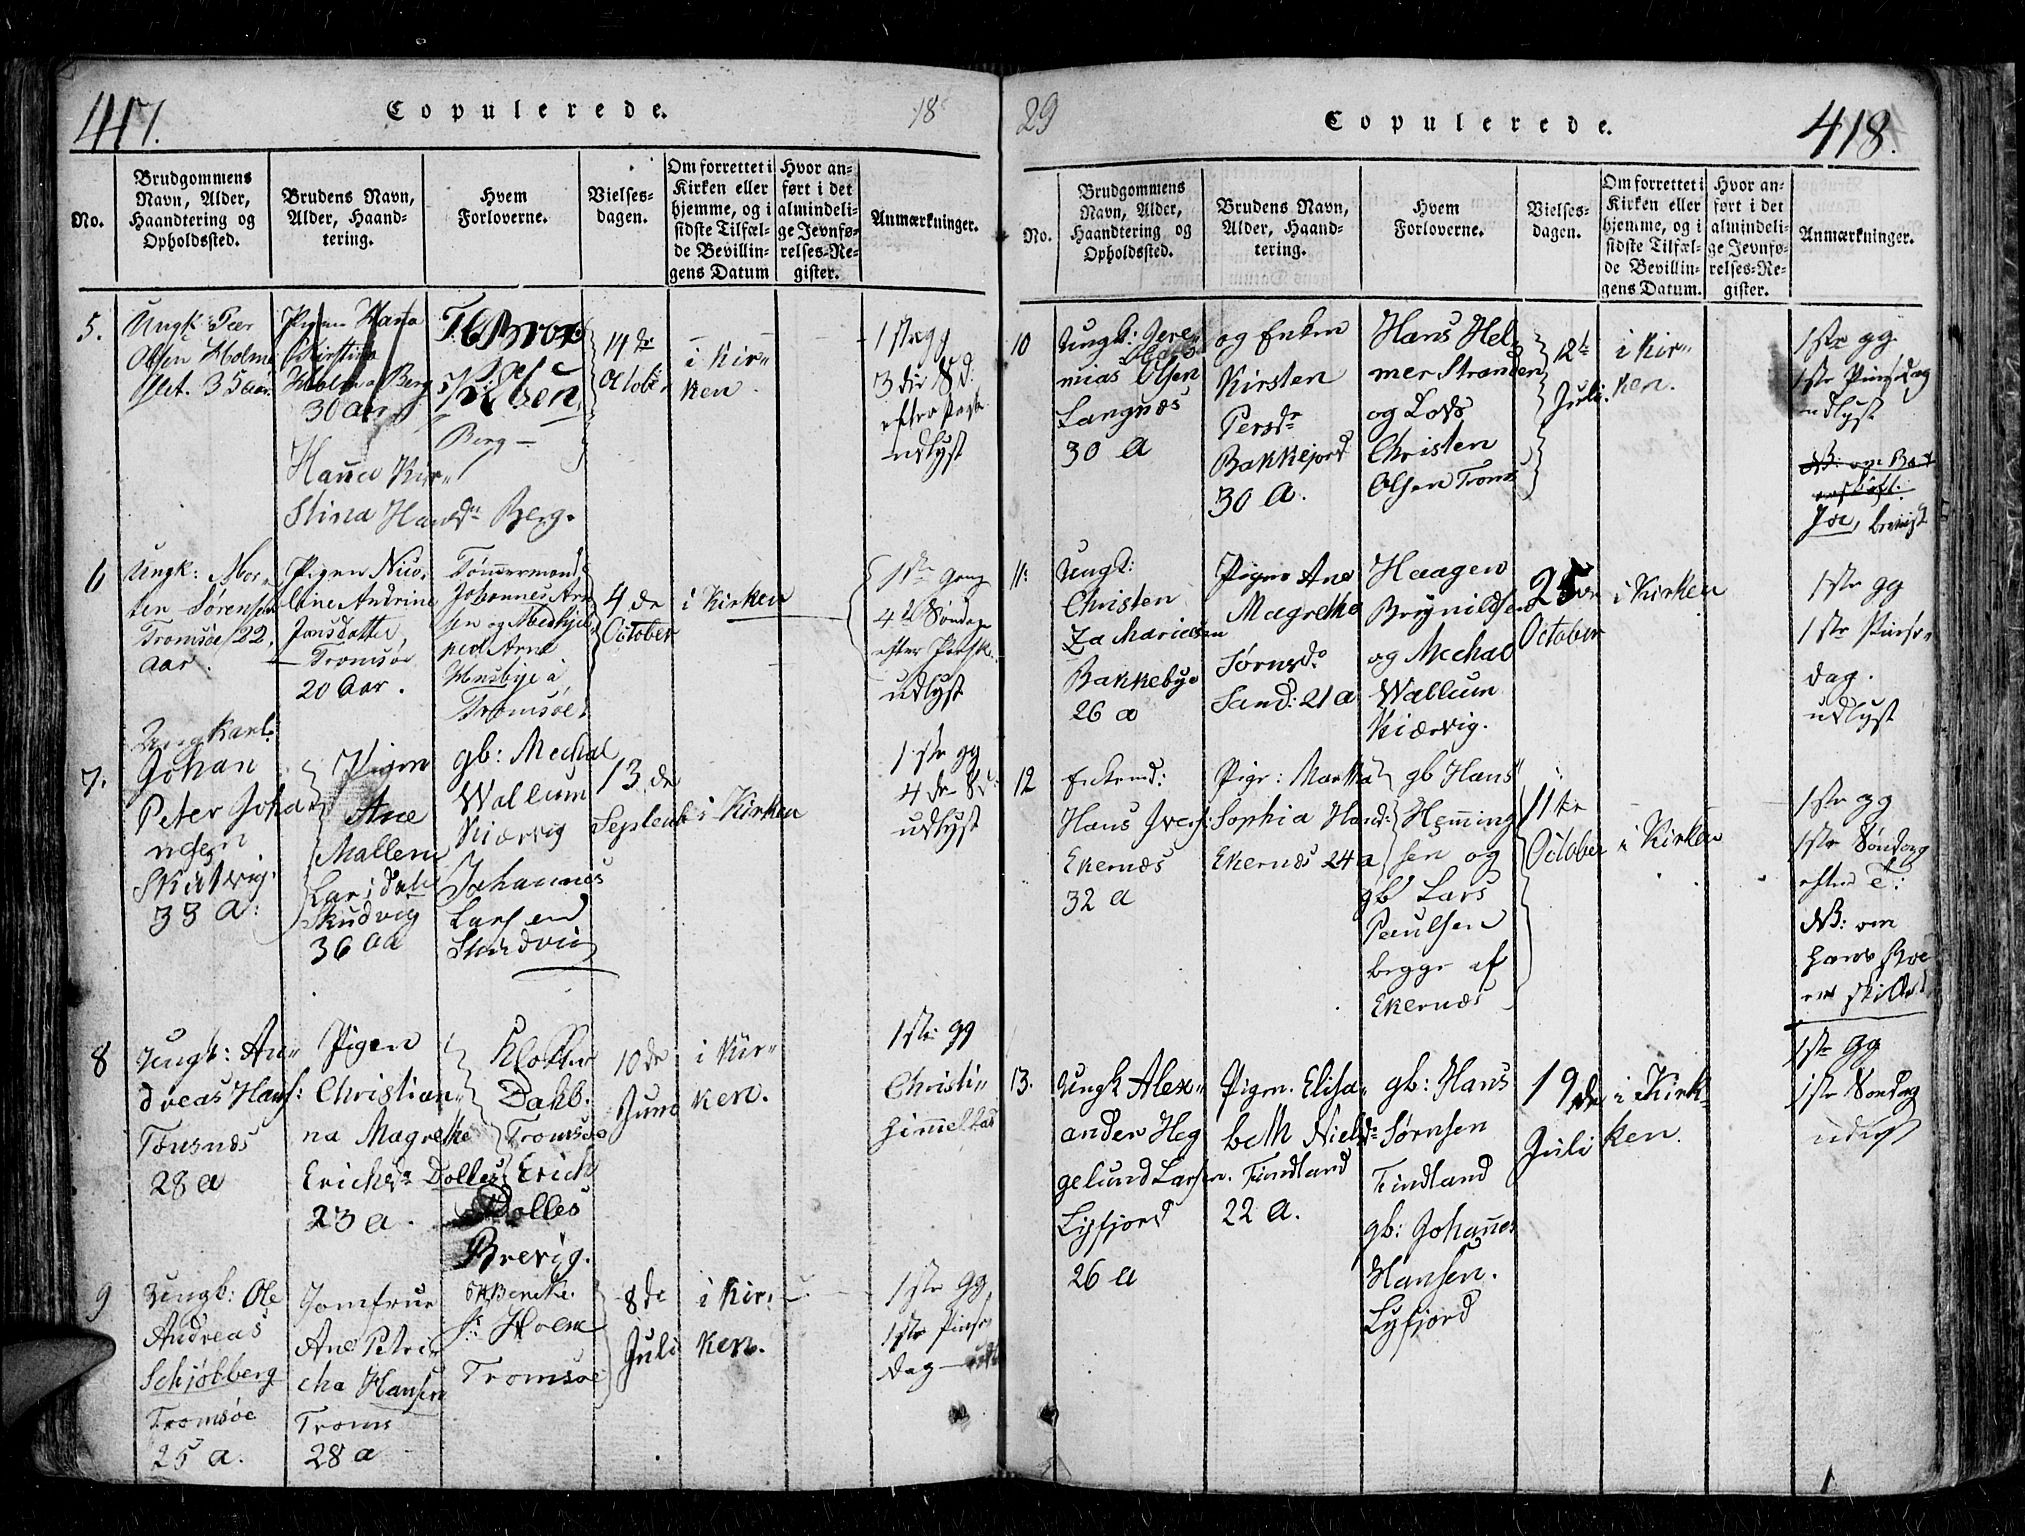 417.
Copulerede.
18
No.
Brudgommens Navn, Alder, Haandtering og Opholdssted.
Brudens Navn, Alder, Haandtering.
Hvem Forloverne.
Vielses-dagen.
Om forrettet i Kirken eller hjemme, og i sidste Tilfælde Bevillingens Datum
Hvor anført i det almindelige Jevnførelses-Register.
Anmærkninger.
5.
Ungk: Peer
Olsen Holme
slet. 35 aar
Pigen Hana
Kirstina
Berg
30 aar
Hanna Kir-
stina Hansdr Berg.
Olsen
Berg
14 de
Octobr
i Kir-
ken.
1 ste gg
3 die Sd.
efter Paske
udlyst
6
Ungk: Mor-
ten Sørensen
Tromsøe 22
aar.
Pigen Nico-
line Andrine
Jonsdatter
Tromsøe
20 Aar.
Tømmermand
Johannes Arn
sen og
Arne
Husbye a
Tromsøe
4 de
October
i Kirken
1ste gang
4de Søndag
efter Paask.
udlyst
7.
Ungkarl:
Johan
Peter Joha
nsen
Skutvig.
33 a:
Pigen
Ane
Mallene
Larsdatr
Skudvig
36 aa
gb: Mechal
Wallum
Kiærvig
Johannes
Larsen
Skudvig
13 de
Septemb
i Kirken
1 ste gg
4 de Sd:
udlyst
8
Ungk: An-
dreas Hans:
Tønsnæs
28 a
Pigen
Christian-
na Magrethe
Erichsdr Dolles
23 a.
Klokker
Dahb.
Tromsøe
Erich
Dolles
Brevig.
10 de
Juni
i Kir-
ken.
1ste gg
Christi
Himmelfad
9
Ungk: Ole
Andreas
Schjølberg
Tromsøe
25 a.
Jomfrue
Ane Petri-
cha Hansen
Troms
28 a
Hr. Holm
Tromsøe
8 de
Juli
i Kir-
ken.
1ste gg
1ste Pinse
dag
29
Copulerede.
418.
No.
Brudgommens Navn, Alder, Haandtering og Opholdssted.
Brudens Navn, Alder, Haandtering.
Hvem Forloverne.
Vielses-dagen.
Om forrettet i Kirken eller hjemme, og i sidste Tilfælde Bevillingens Datum.
Hvor anført i det almindelige Jevnførelses-Register.
Anmærkninger.
10
Ungk: Jere-
mias Olsen
Langnæs
30 a
og Enken
Kirsten
Persdr
Bakkejord
30 A.
Hans Hel-
mer Stranden
og Lods
Christen
Olsen Troms
12te
Juli
i Kir-
ken.
1ste gg.
1ste Pinsedag
udlyst
NB: om
11:
Ungk:
Christen
Zakariasen
Bakkebye
26 a
Pigen Ane
Magrethe
Sørnsdr
Sand: 21 a
Haagen
Brynildsen
og Mechal
Wallum
Kiærvig.
25 de
October
i Kirken
1 ste gg
1 ste Pinse-
dag.
udlyst
12
Enkemd:
Hans Ivers:
Ekernæs
32 a
Pige: Martha
Sophia Hansd:
Ekernæs 24 a
gb Hans
Hemming
sen og
gb Lars
Paulsen
begge af
Ekernæs
11te
October
i Kirken
1ste gg
1ste Søndag
efter T:
NB: om
13.
Ungk Alex-
ander Heg
gelund Larsen.
Lysfjord
26 a
Pigen. Elisa-
beth Nielsdr
Tindland
22 a.
gb: Hans
Sørnsen
Tindland
gb: Johannes
Hansen.
Lysfjord
19 de
Juli
i Kirk-
ken.
1ste gg
1ste Søndag